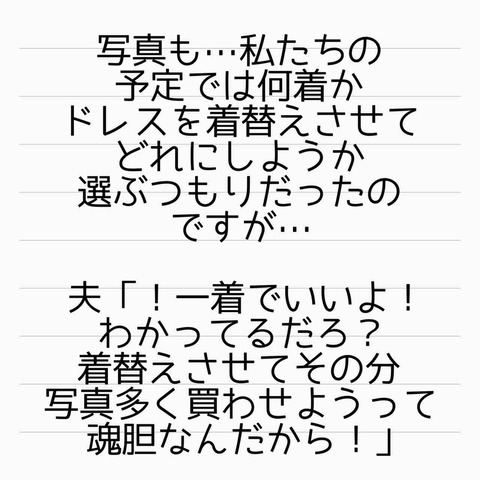 写真も…私たちの
予定では何着か
ドレスを着替えさせて
どれにしようか
選ぶつもりだったの
ですが…
夫「！一着でいいよ！
わかってるだろ？
着替えさせてその分
写真多く買わせようって
魂胆なんだから！」